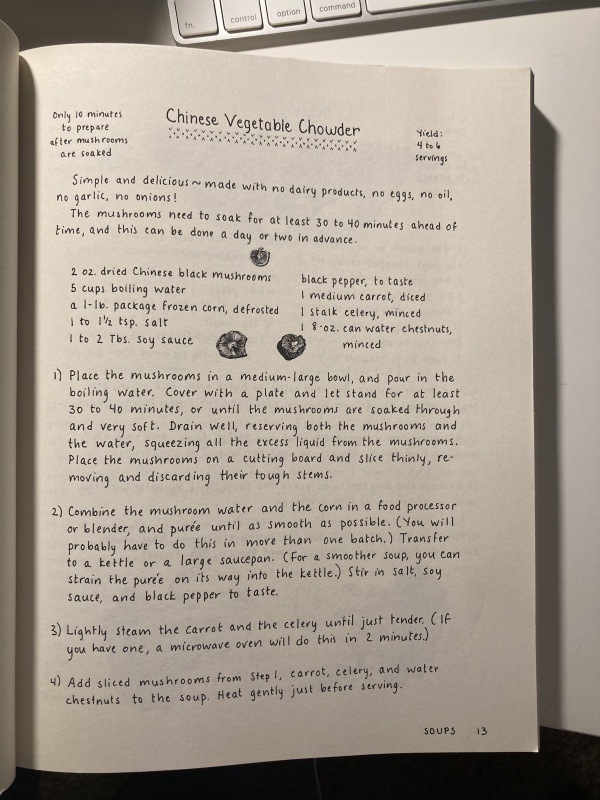 fn
control
option
command
Only 10 minutes
to prepare
after mushrooms
are soaked
Chinese Vegetable Chowder
Yield:
4 to 6
servings
Simple and delicious ~ made with no dairy products, no eggs, no oil,
no garlic, no onions!
The mushrooms need to soak for at least 30 to 40 minutes ahead of
time, and this can be done a day or two in advance.
2 oz. dried Chinese black mushrooms
5 cups boiling water
a 1-lb. package frozen corn, defrosted
1 to 1½ tsp. salt
1 to 2 Tbs. soy sauce
black pepper, to taste
1 medium carrot, diced
1 stalk celery, minced
1 8-oz. can water chestnuts,
minced
1) Place the mushrooms in a medium-large bowl, and pour in the
boiling water. Cover with a plate and let stand for at least
30 to 40 minutes, or until the mushrooms are soaked through
and very soft. Drain well, reserving both the mushrooms and
the water, squeezing all the excess liquid from the mushrooms.
Place the mushrooms on a cutting board and slice thinly, re-
moving and discarding their tough stems.
2) Combine the mushroom water and the corn in a food processor
or blender, and purée until as smooth as possible. (You will
probably have to do this in more than one batch.) Transfer
to a kettle or a large saucepan. (For a smoother soup, you can
strain the purée on its way into the kettle.) Stir in salt, soy
sauce, and black pepper to taste.
3) Lightly steam the carrot and the celery until just tender. (If
you have one, a microwave oven will do this in 2 minutes.)
4) Add sliced mushrooms from Step 1, carrot, celery, and water
chestnuts to the soup. Heat gently just before serving.
SOUPS 13